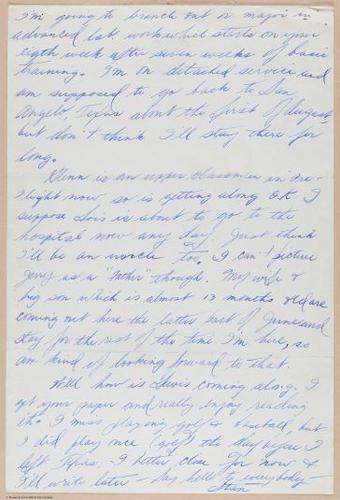 I'm going to branch out or major in
advanced lab. work which starts on your
eigth week after seven weeks of basic
training. I'm on detached service and
am supposed to go back to San
Angelo, Texas about the first of August
but don't think I'll stay there for
long.
Glenn is an upper classman in Pre-
Flight now, so is getting along O.K. I
suppose Lois is about to go to the
hospital now any day. Just think
I'll be an uncle too. I can't picture
Jerry as a "Father" though. My wife &
big son which is almost 13 months old are
coming out here the latter part of June and
stay for the rest of the time I'm here, so
am kind of looking forward to that.
Well how is Lewis coming along. I
get your paper and really enjoy reading
it. I miss playing golf & baseball, but
I did play once (golf) the day before I
left Texas. I better close for now &
I'll write later - Say hello to everybody -
Stan